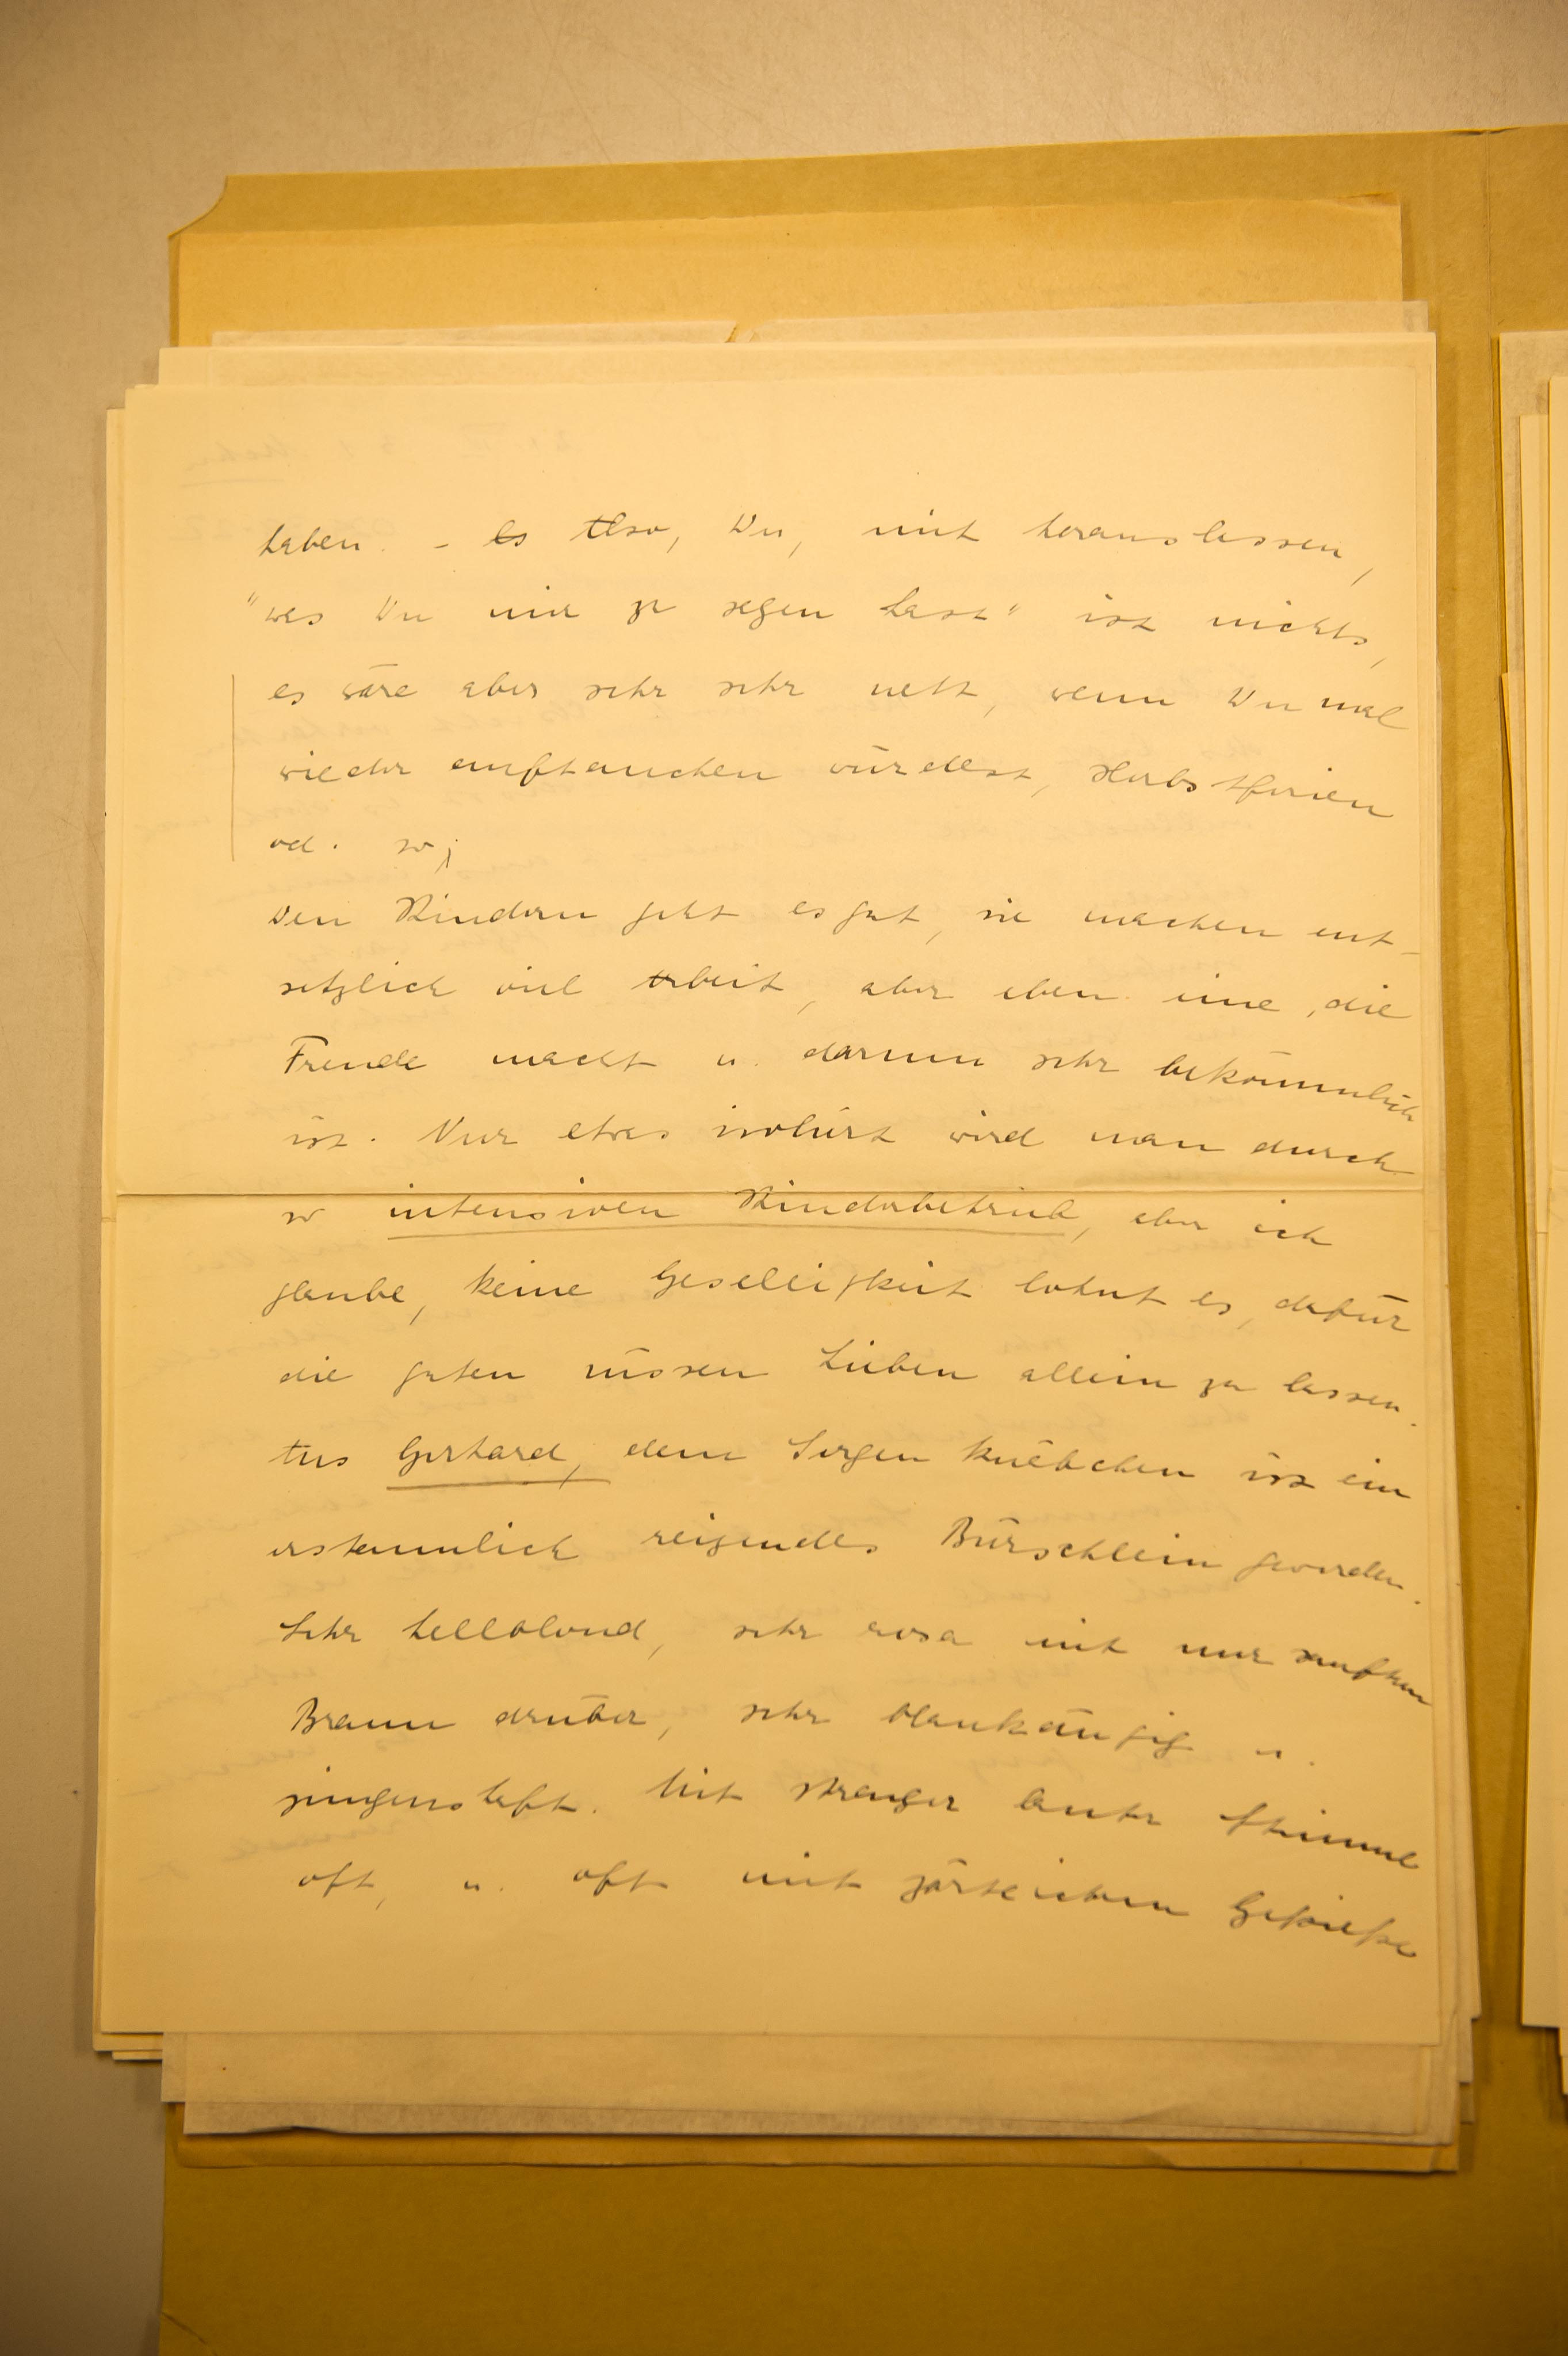 haben. - Es Also, Du, mit herauslassen,
"was Du mir zu sagen hast" ist nichts,
es wäre aber sehr sehr nett, wenn Du mal
wieder auftauchen würdest, Herbstferien
od. so;
Den Kindern geht es gut, sie machen ent-
setzlich viel Arbeit, aber eben eine, die
Freude macht u. darum sehr bekömmlich
ist. Nur etwas isoliert wird man durch
so intensiven Kinderbetrieb, aber ich
glaube, keine Geselligkeit lohnt es, dafür
die guten süssen Lieben allein zu lassen.
Aus Gerhard, dem Sorgenknäbchen ist ein
erstaunlich reizendes Bürschlein geworden.
Sehr hellblond, sehr rosa mit nur sanftem
Braun drüber, sehr blankäugig u.
jungenshaft. Mit strenger lauter Stimme
oft, u. oft mit zärtlichem